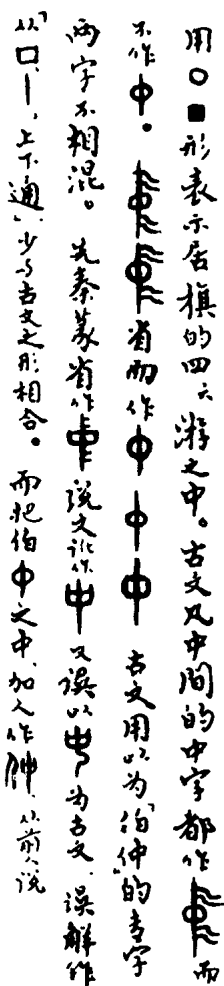 用〇■形表示居旗的四六游之中。古文凡中间的中字都作而
不作中。省而作中中中古文用以为「伯仲」的专字
两字不相混。先秦篆省作说文讹作中又误以为古文、误解作
从「口、丨、上下通」、少与古文之形相合。而把伯中之中、加人作仲、从前人说